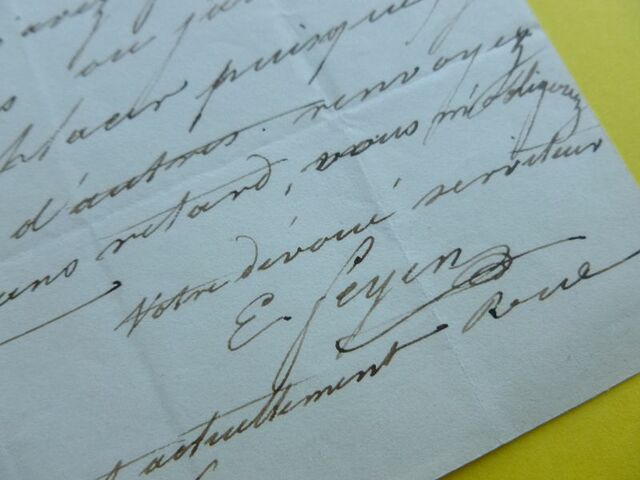 ou
placer puisque
d'autres. renvoyez
sans retard, vous m'obligerez
Votre dévoué serviteur
E. Feyen
actuellement Rue